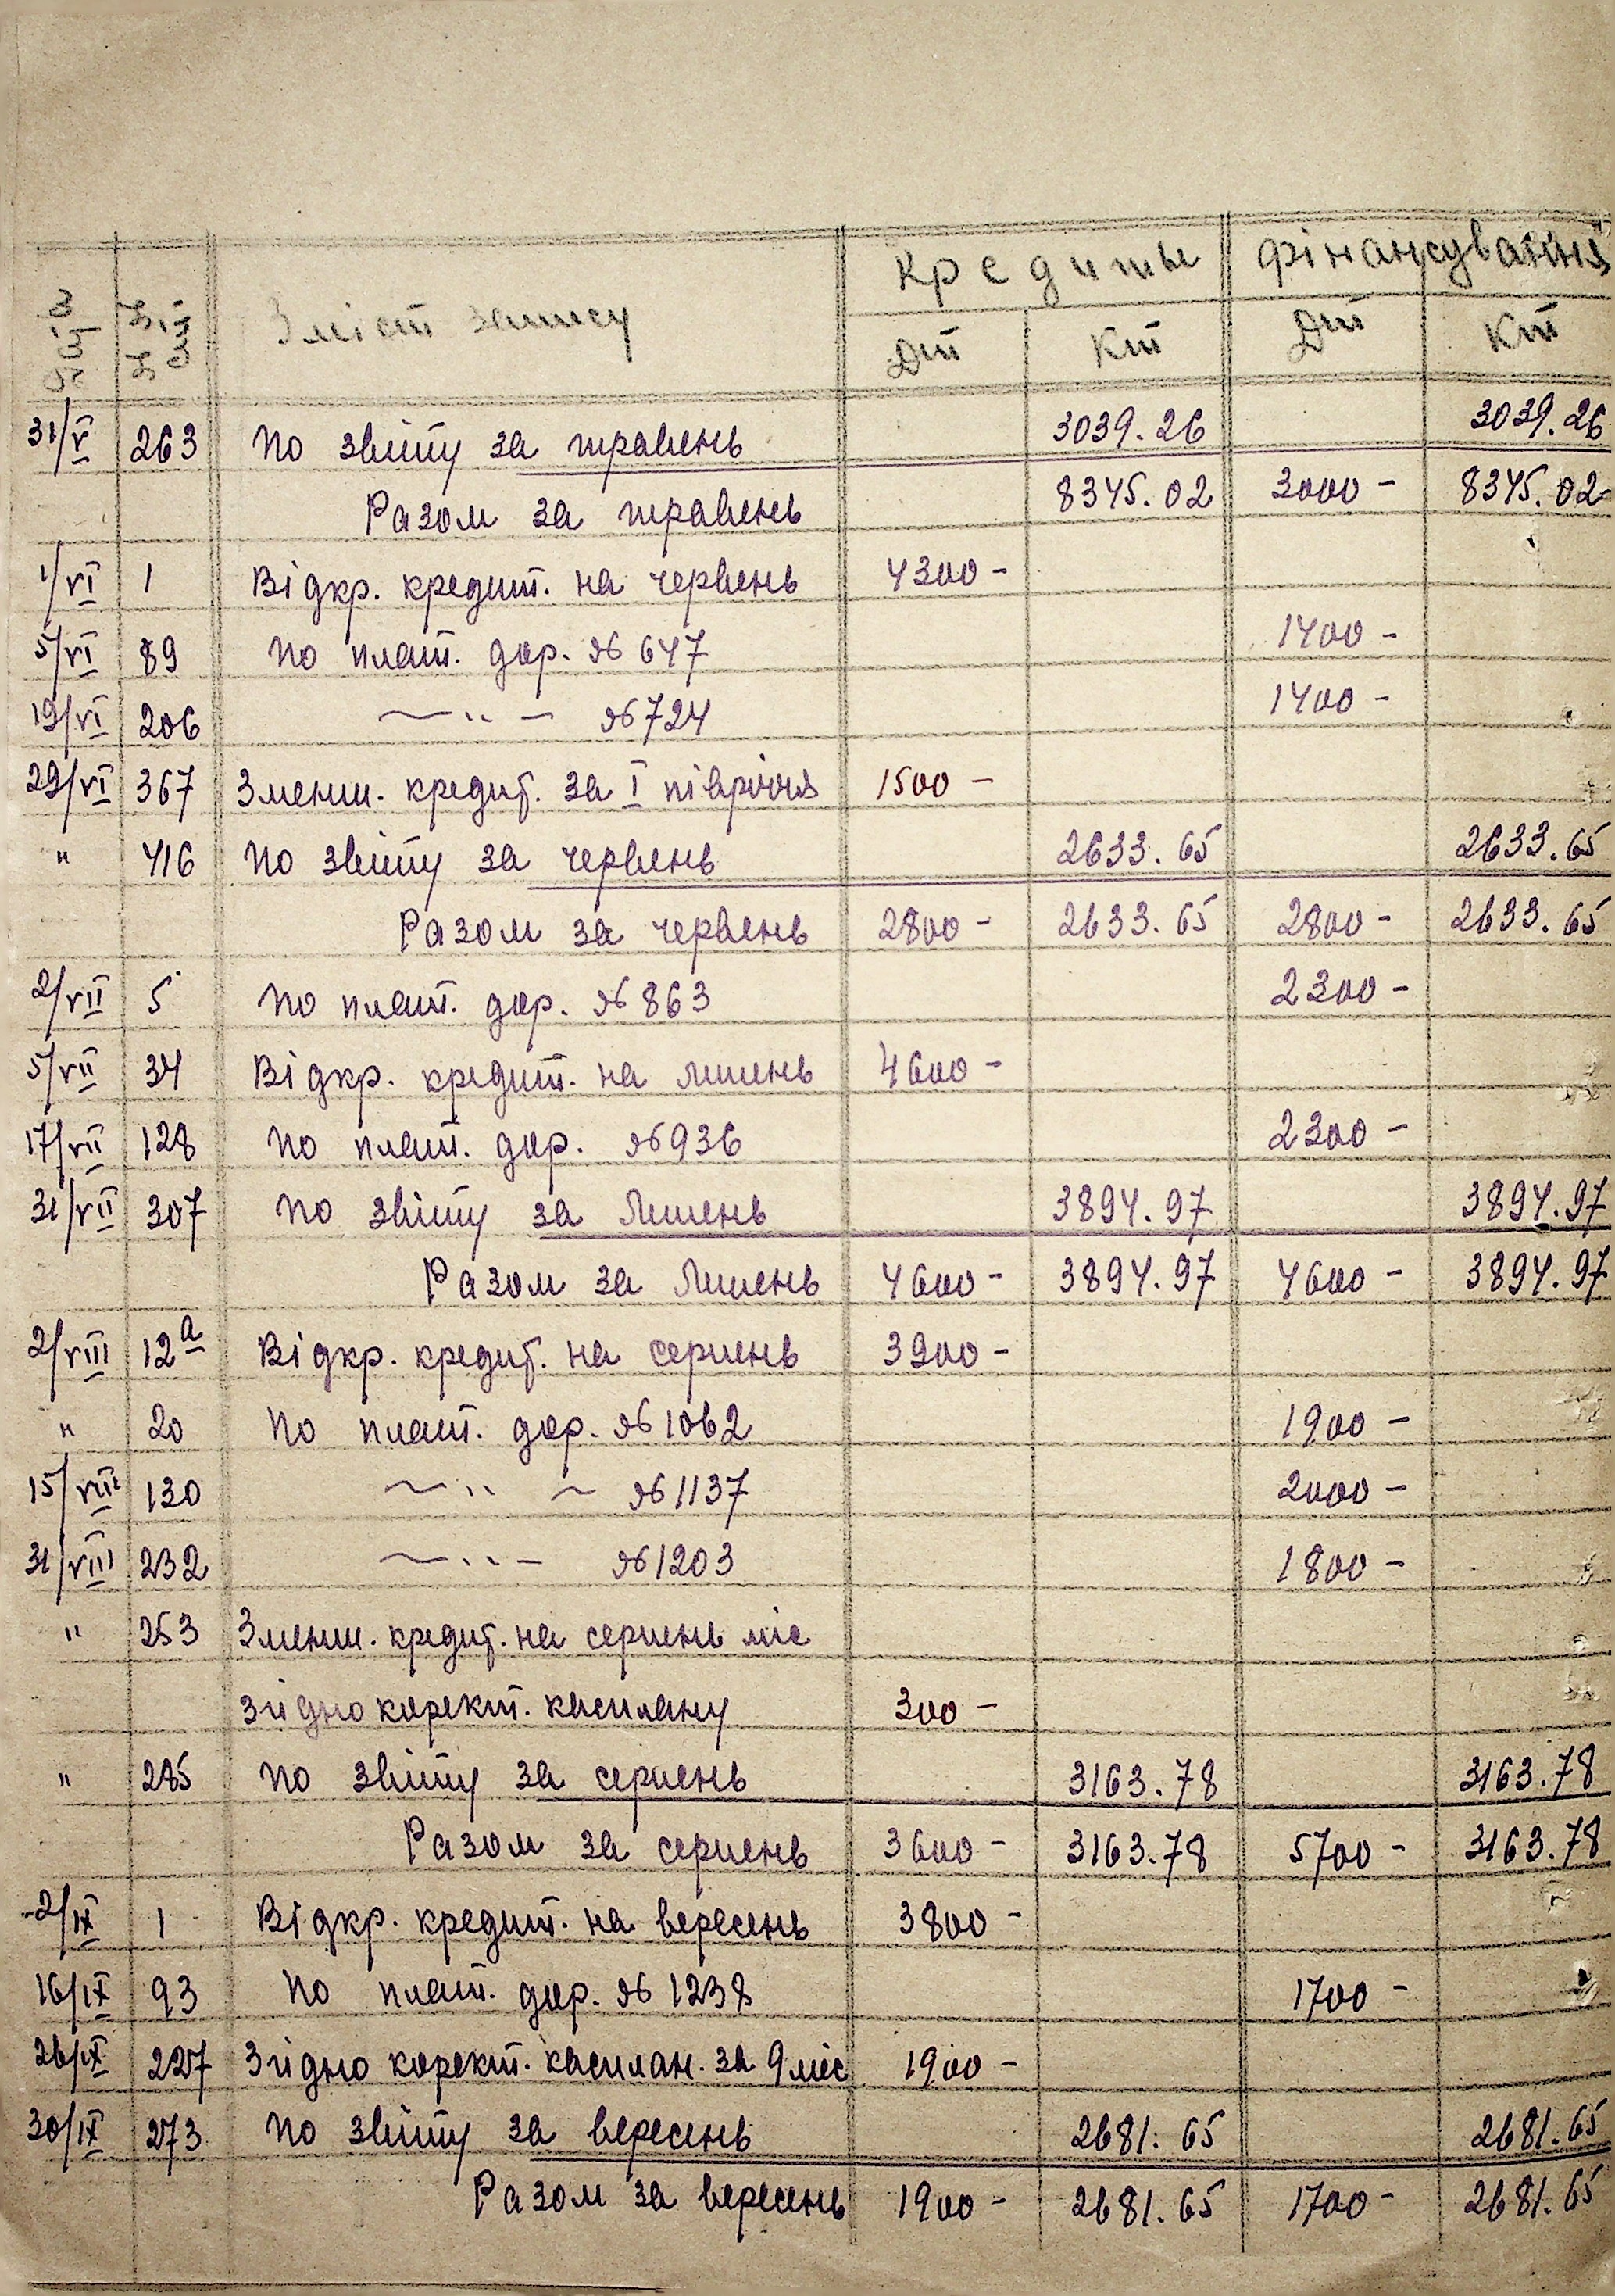 Кредити Фінансування
Зміст запису Дт Кт Дт Кт
31/V 263 По звіту за травень 3039.26 3039.26
Разом за травень 8345.02 3000- 8345.02
1/VI 1 Відкр. кредит. на червень 4300-
5/VI 89 По плат. дор. № 647 1400-
19/VI 206 —〃— № 724 1400-
29/VI 367 Зменш. кредит. за I півріччя 1500-
〃 416 По звіту за червень 2633.65 2633.65
Разом за червень 2800- 2633.65 2800- 2633.65
2/VII 5 По плат. дор. № 863 2300-
5/VII 34 Відкр. кредит. на липень 4600-
17/VII 128 По плат. дор. № 936 2300-
31/VII 307 По звіту за Липень 3894.97 3894.97
Разом за Липень 4600- 3894.97 4600- 3894.97
2/VIII 12а Відкр. кредит. на серпень 3900-
〃 20 По плат. дор. № 1062 1900-
15/VIII 130 —〃— № 1137 2000-
31/VIII 232 —〃— № 1203 1800-
〃 253 Зменш. кредит. на серпень міс
згідно корект. касплану 300-
〃 285 По звіту за серпень 3163.78 3163.78
Разом за серпень 3600- 3163.78 5700- 3163.78
2/IX 1 Відкр. кредит. на вересень 3800-
16/IX 93 По плат. дор. № 1238 1700-
26/IX 227 Згідно корект. касплан. за 9 міс 1900-
30/IX 273 По звіту за вересень 2681.65 2681.65
Разом за вересень 1900- 2681.65 1700- 2681.65